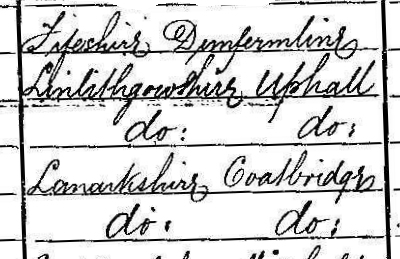 Fifeshire Dunfermline
Linlithgowshire Uphall
do: do:
Lanarkshire Coatbridge
do: do: